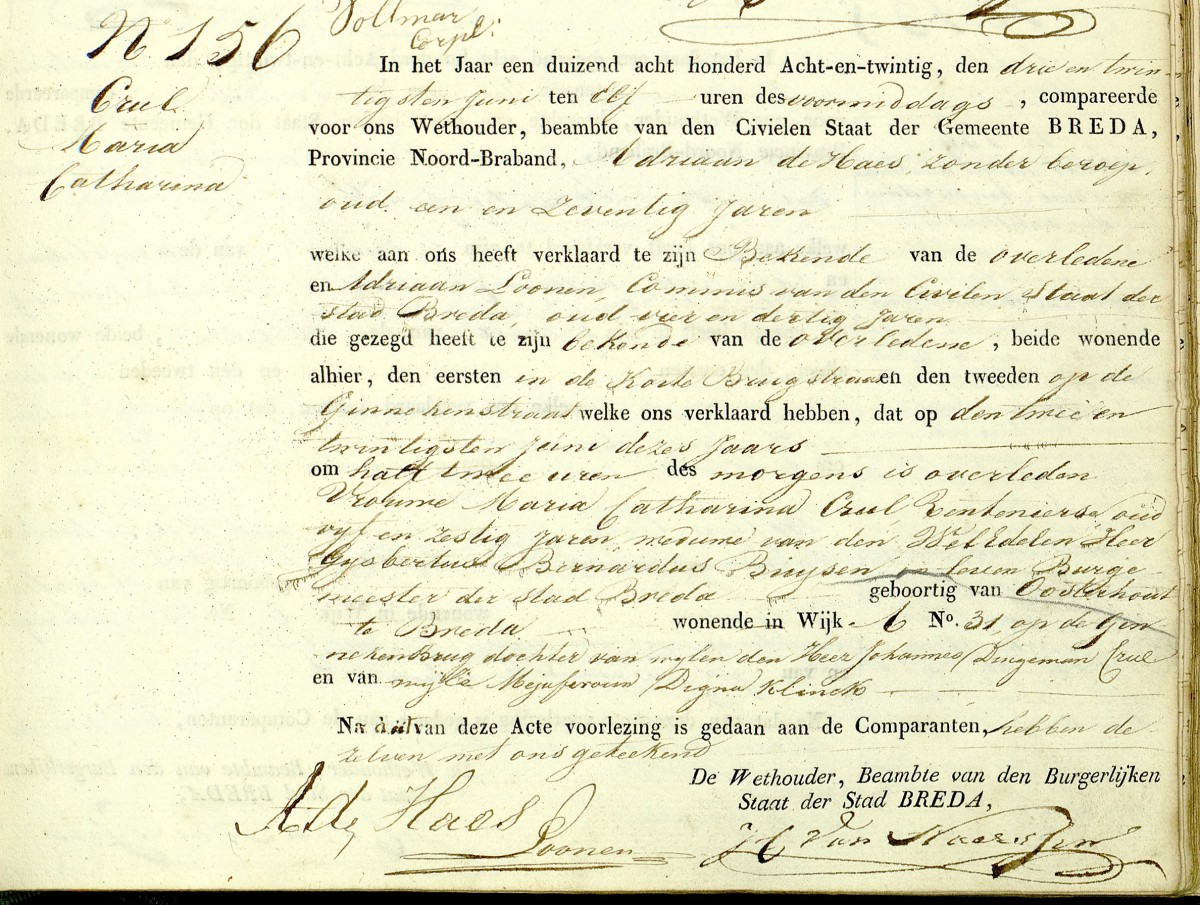 Vollmar
Corpl:
N 156
Crul
Maria
Catharina
In het Jaar een duizend acht honderd Acht-en-twintig, den drie en twin
tigsten Juni ten elf uren des voormiddags, compareerde
voor ons Wethouder, beambte van den Civielen Staat der Gemeente BREDA,
Provincie Noord-Braband, Adriaan de Haes, zonder beroep,
oud een en Zeventig Jaren
welke aan ons heeft verklaard te zijn Bekende van de overledene
en Adriaan Loonen, Commis van den Civilen Staat der
stad Breda, oud vier en dertig Jaren
die gezegd heeft te zijn bekende van de overledene, beide wonende
alhier, den eersten in de Korte Brugstraat en den tweeden op de
Ginnekenstraat welke ons verklaard hebben, dat op den twee en
twintigsten Juni dezes Jaars
om half twee uren des morgens is overleden
Vrouwe Maria Catharina Crul Renteniersse, oud
vyf en zestig Jaren, weduwe van den WelEdelen Heer
Gysbertus Bernardus Buysen in leven Burge
meester der stad Breda geboortig van Oosterhout
te Breda wonende in Wijk A No. 31, op de Gin
nekenbrug dochter van wylen den Heer Johannes Dingeman Crul
en van wyle Mejufvrouw Digna Klinck
Na dat van deze Acte voorlezing is gedaan aan de Comparanten, hebben de
zelven met ons geteekend
De Wethouder, Beambte van den Burgerlijken
Staat der Stad BREDA,
A. de Haes
Loonen